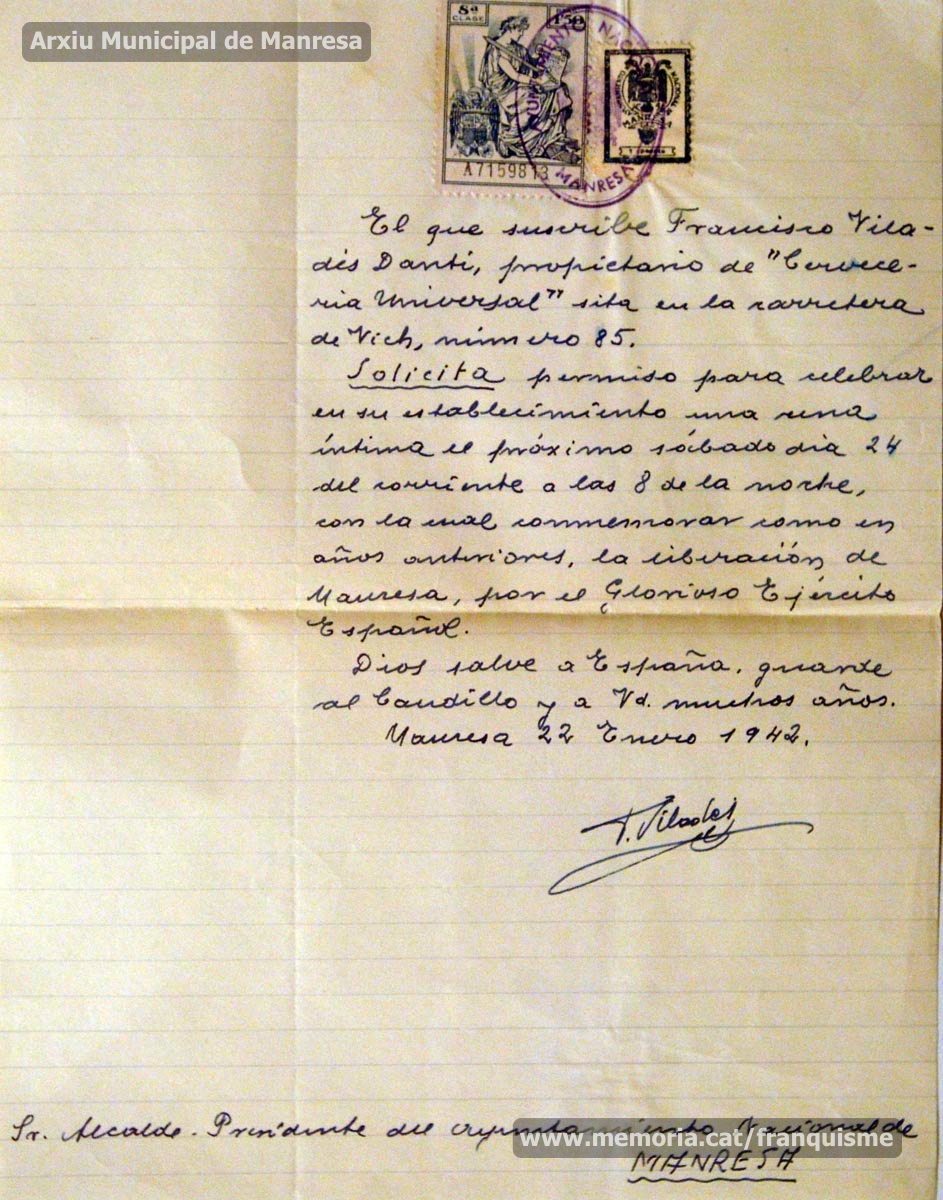 Arxiu Municipal de Manresa
8ª CLASE 1'50
A7159813
AYUNTAMIENTO NACIONAL
MANRESA
El que suscribe Francisco Vila-
dés Danti, propietario de "Cervece-
ria Universal" sita en la carretera
de Vich, número 85.
Solicita permiso para celebrar
en su establecimiento una cena
íntima el próximo sábado dia 24
del corriente a las 8 de la noche,
con la cual conmemorar como en
años anteriores, la liberación de
Manresa, por el Glorioso Ejército
Español.
Dios salve a España, guarde
al Caudillo y a Vd. muchos años.
Manresa 22 Enero 1942.
F. Viladés
Sr. Alcalde-Presidente del Ayuntamiento Nacional de
MANRESA
www.memoria.cat/franquisme